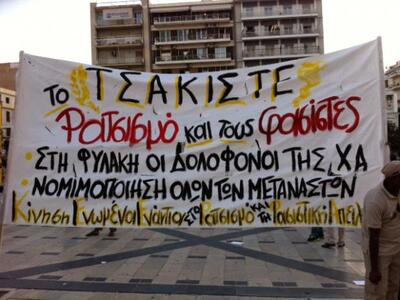 ΤΣΑΚΙΣΤΕ
το Ρατσισμό και τους φασίστες
• ΣΤΗ ΦΥΛΑΚΗ ΟΙ ΔΟΛΟΦΟΝΟΙ ΤΗΣ ΧΑ
• ΝΟΜΙΜΟΠΟΙΗΣΗ ΟΛΩΝ ΤΩΝ ΜΕΤΑΝΑΣΤΩΝ
Κίνηση Ενωμένοι Ενάντια στο Ρατσισμό και τη Φασιστική Απειλή